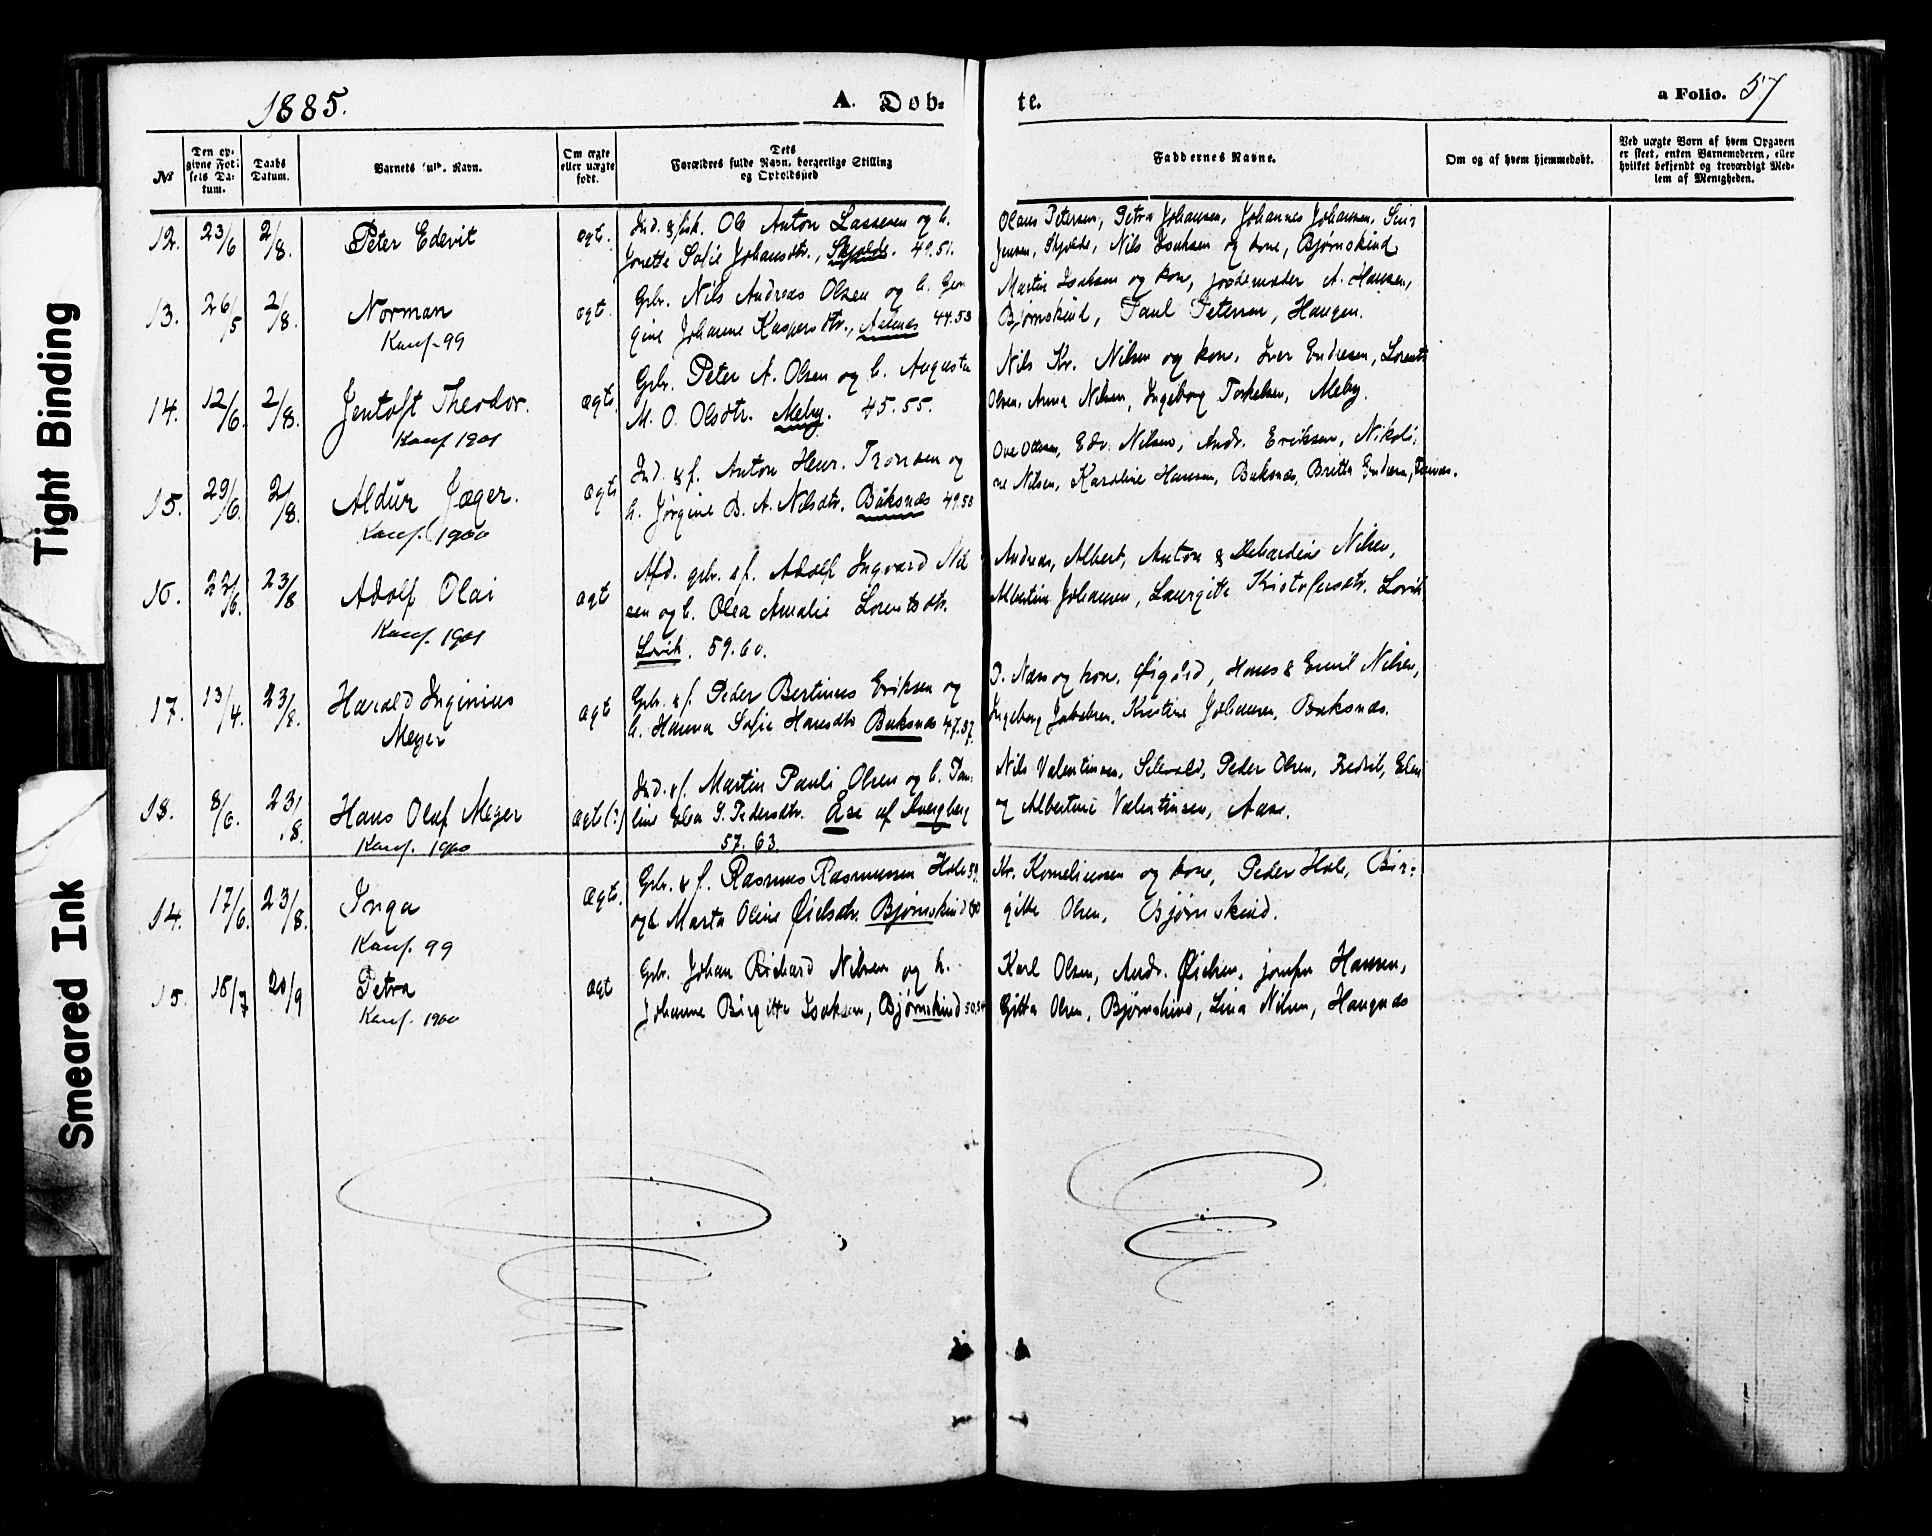 1885.
A. Dob-
te.
a Folio. 57
№
Den op-
givne Fød-
sels Da-
tum.
Daabs
Datum.
Barnets fulde Navn.
Om ægte
eller uægte
født.
Dets
Forældres fulde Navn, borgerlige Stilling
og Opholdssted
Faddernes Navne.
Om og af hvem hjemmedøbt.
Ved uægte Børn af hvem Opgaven
er skeet, enten Barnemoderen, eller
hvilket bekjendt og troværdigt Med-
lem af Menigheden.
12. 23/6 2/8. Peter Edevit ægt.
Ind. & fisk. Ole Anton Lassesen og h.
Jonette Sofie Johansdtr., Skjolde. 49.51.
Olaus Petersen, Petra Johansen, Johannes Johansen,
Jensen, Skjolde, Nils Isaksen og kone, Bjørnskind
13. 26/5 2/8. Norman ægt.
Kauf. 99
Grbr. Nils Andreas Olsen og h. Geor
gine Johanne Kaspersdtr., 44.53
Martin Isaksen og kone, jordemoder A. Hansen,
Bjørnskind, Paul Petersen, Haugen.
14. 12/6. 2/8. Jentoft Theodor. ægt.
Kauf 1901
Grbr. Peter A. Olsen og h. Augusta
M. O. Olsdtr. Meby. 45.55.
Nils Kr. Nilsen og kone, Iver Endresen, Lorents
Olsen, Anna Nilsen, Ingeborg Torkelsen, Meby.
15. 29/6. 2/8. Aldur Jæger. ægt.
Kauf. 1900
Ind. & f. Anton Henr. Tronsen og
h. Jørgine B. A. Nilsdtr. Buksnæs 49.53
Ove Ottesen, Edv. Nilsen, Andr. Eriksen, Nikoli-
ne Nilsen, Karoline Hansen, Buksnæs, Britta Endresen,
16. 22/6. 23/8 Adolf Olai ægt
Kauf. 1901
Afd. grbr. & f. Adolf Ingvard Nil
sen og h. Olea Amalie Lorentsdtr.
Sørvik. 59.60.
Andreas, Albert, Anton & Nilsen,
Albertine Johansen, Laurgitte Kristofersdtr.
17. 13/4. 23/8. Harald Inginius ægt
Meyer
Grbr. & f. Peder Bertinus Eriksen og
h. Hanna Sofie Hansdtr. Buksnæs 47.37
Næs og kone, Hans & Emil Nilsen,
Ingeborg Jakobsen, Kristine Johansen, Buksnæs.
18. 8/6. 23/8. Hans Oluf Meyer ægt(?)
Kauf. 1900
Ind. & f. Martin Pauli Olsen og h. Pau-
line Elea S. Pedersdtr. Åse af Kvegberg
57.63.
Nils Valentinsen, Peder Olsen, Fredrik, Elen
og Albertine Valentinsen, Aase.
14. 17/6. 23/8. Inga ægt.
Kauf. 99
Grbr. & f. Rasmus Rasmussen Hole 59.
og h. Marta Oline Øielsdtr. Bjørnskind 60
Kr. Korneliussen og kone, Peder Hole, Bir-
gitte Olsen, Bjørnskind.
15. 18/7 20/9 Petra ægt
Kauf. 1900
Grbr. Johan Richard Nilsen og h.
Johanne Birgitte Isaksen, Bjørnskind 50.54
Karl Olsen, Andr. Øielsen, jomfru Hansen,
Gitta Olsen, Bjørnskind, Lina Nilsen, Haugnæs
Tight Binding
Smeared Ink